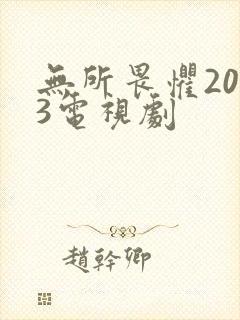 無所畏懼20
3電視劇
趙幹卿